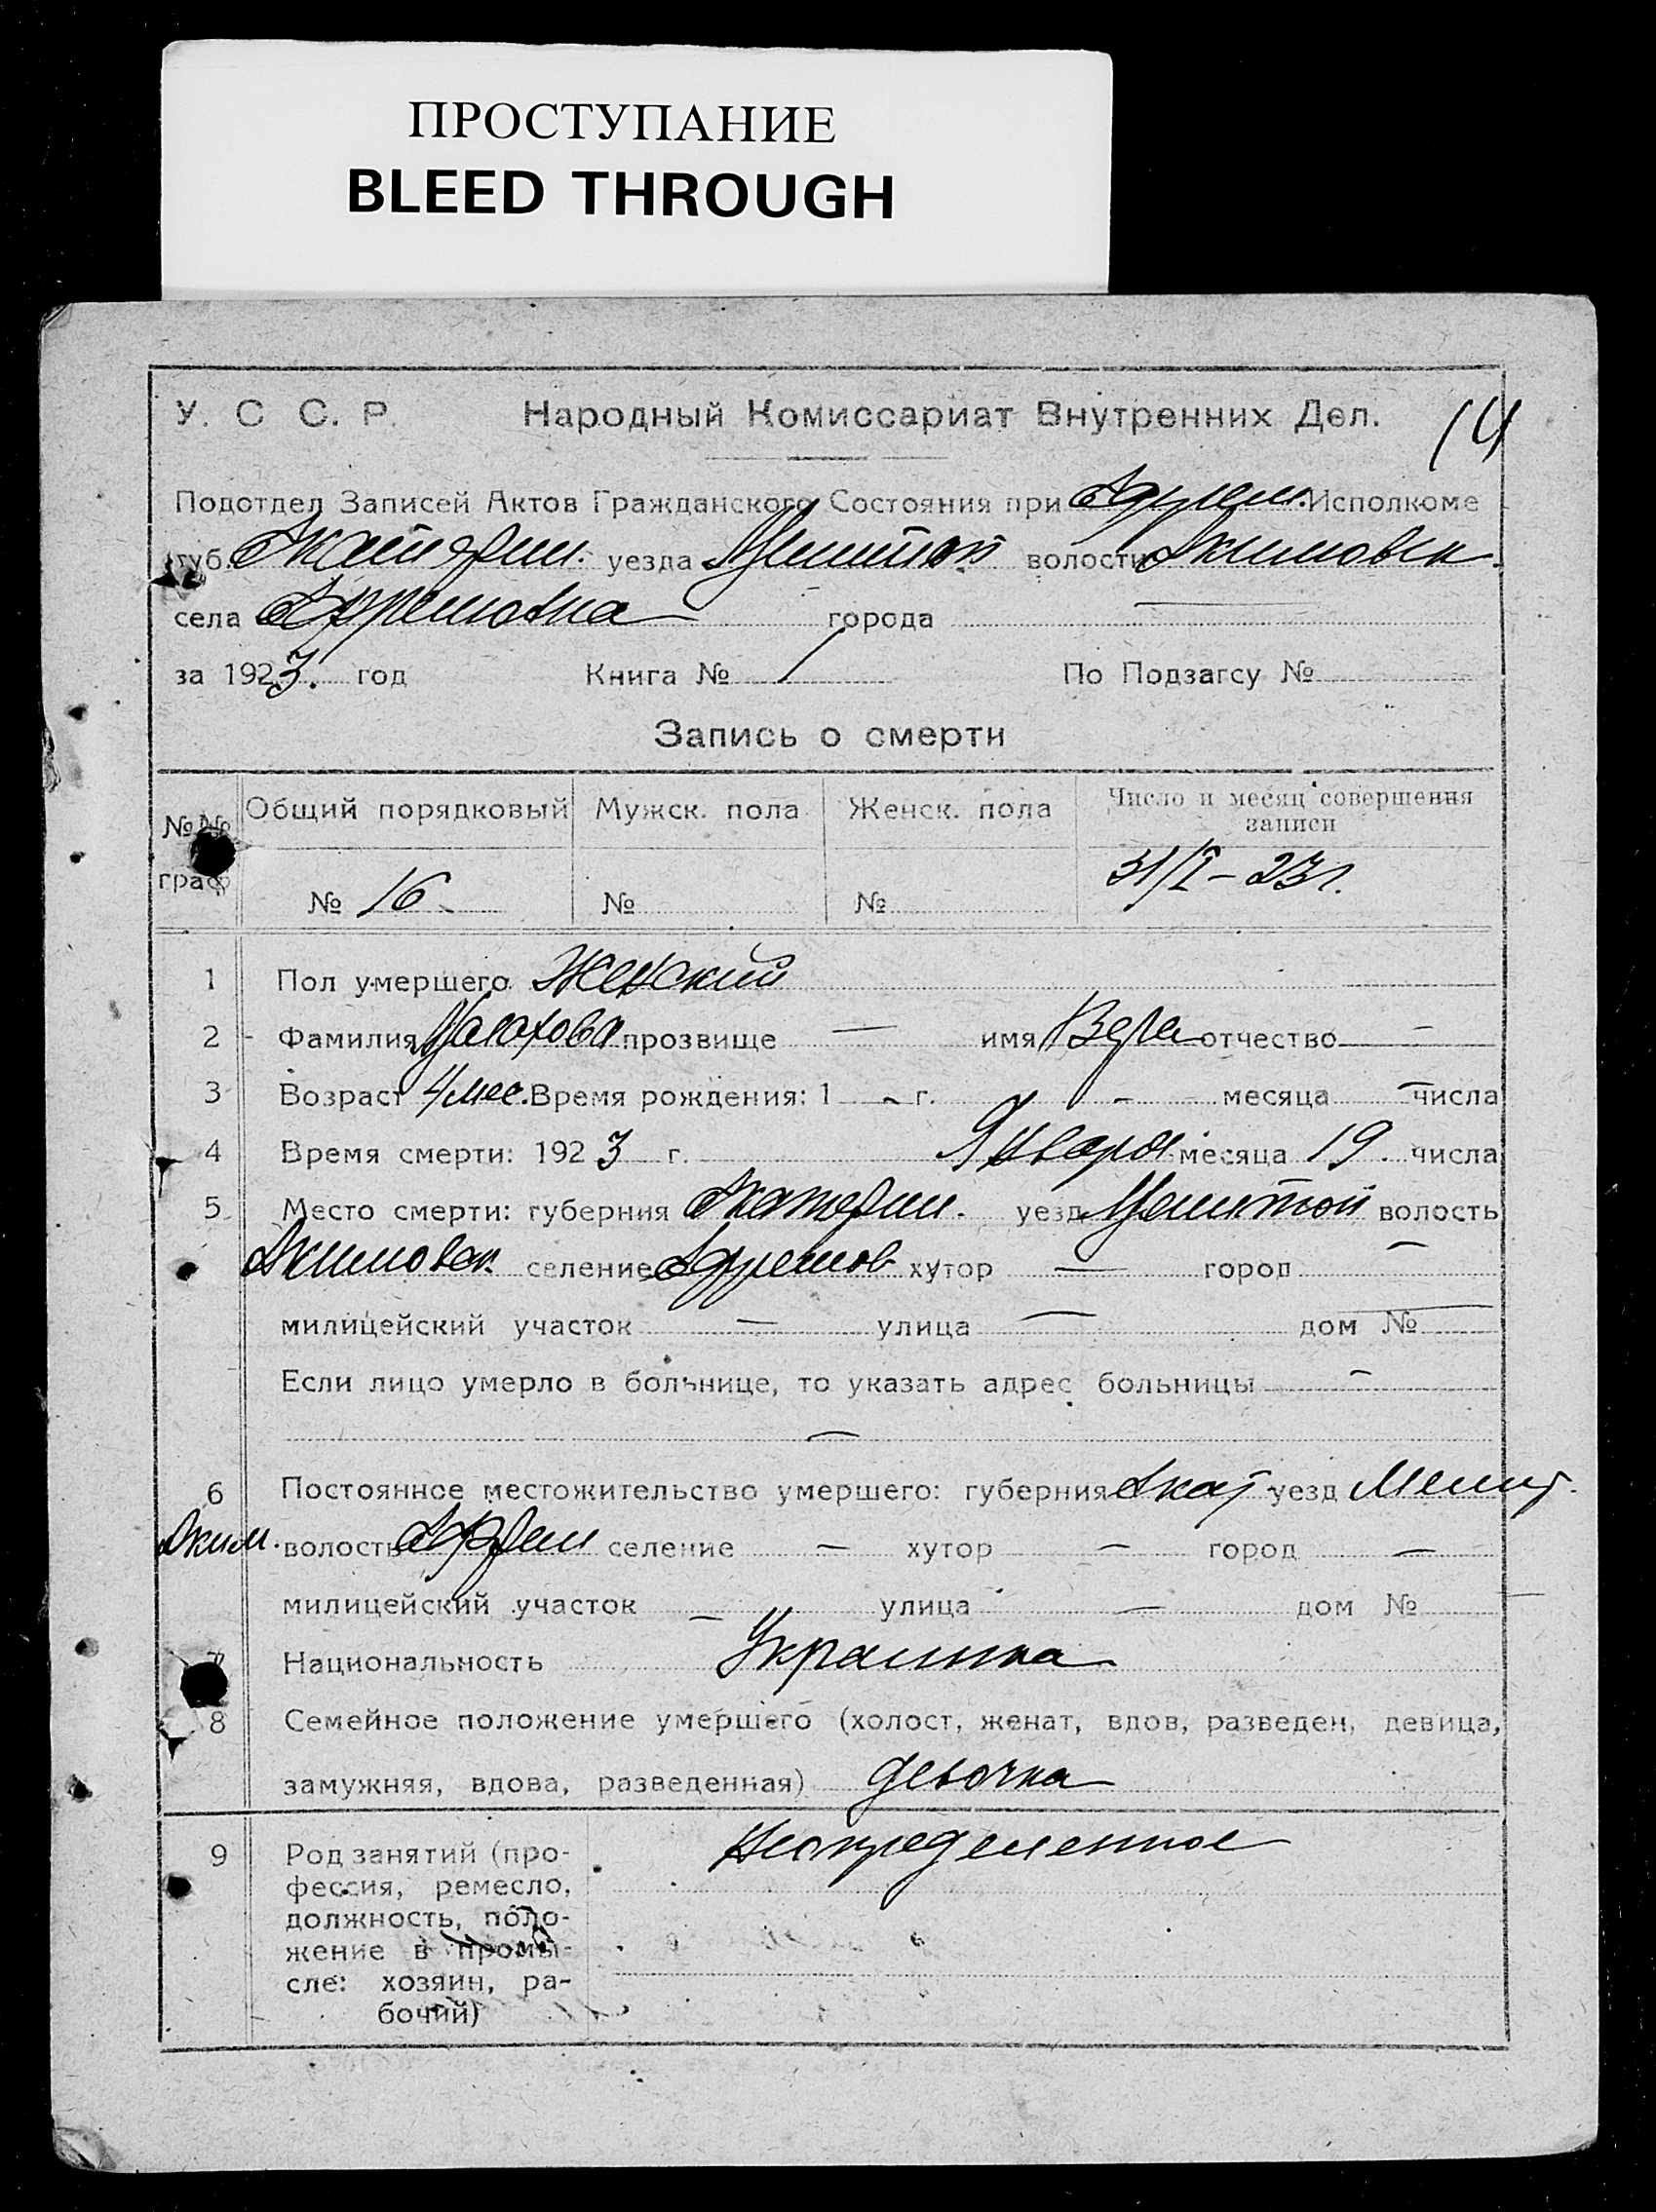 ПРОСТУПАНИЕ
BLEED THROUGH
У. С С. Р. Народный Комиссариат Внутренних Дел. 14
Подотдел Записей Актов Гражданского Состояния при Ефрем. Исполкоме
губ. Екатерин. уезда волости Акимовск.
села Ефремовка города
за 1923. год Книга № 1 По Подзагсу №
Запись о смерти
№№ граф Общий порядковый Мужск. пола Женск. пола Число и месяц совершения
записи
№ 16 № № 31/I – 23 г.
1 Пол умершего Женский
2 Фамилия прозвище — имя Вера отчество —
3 Возраст 4 мес. Время рождения: 1 — г. — месяца — числа
4 Время смерти: 1923 г. Января месяца 19 числа
5 Место смерти: губерния Екатерин. уезд волость
Акимовск. селение Ефремов хутор — город —
милицейский участок — улица — дом № —
Если лицо умерло в больнице, то указать адрес больницы —
—
6 Постоянное местожительство умершего: губерния Екат уезд Мелит.
Аким. волость Ефрем селение — хутор — город —
милицейский участок — улица — дом № —
7 Национальность Украинка
8 Семейное положение умершего (холост, женат, вдов, разведен, девица,
замужняя, вдова, разведенная) девочка
9 Род занятий (про-
фессия, ремесло,
должность, поло-
жение в промы-
сле: хозяин, ра-
бочий)
Неопределенное